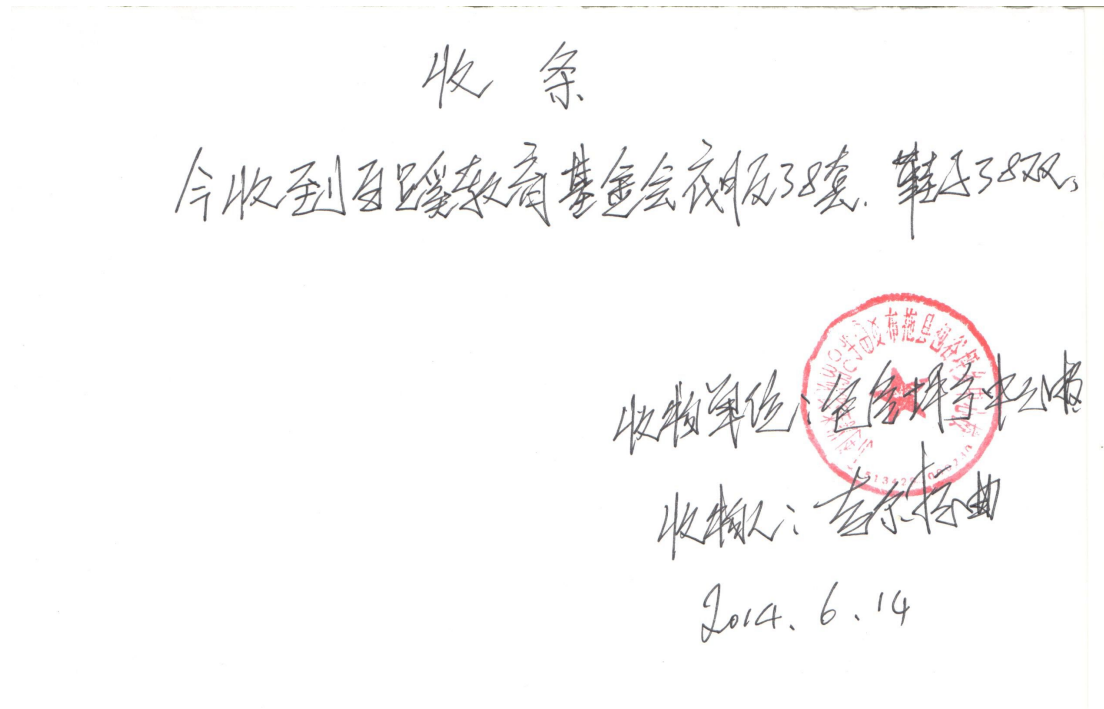 收 条
今收到百蹊教育基金会衣服38套.鞋子38双。
收物单位:包谷坪乡中心校
收物人:吉尔 曲
2014.6.14
布拖县包谷坪乡中心校